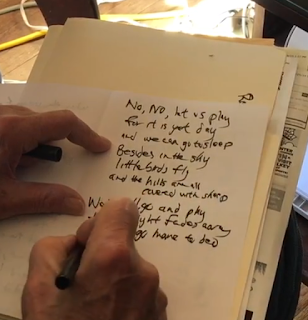 No, No, let us play
for it is yet day
and we can go to sleep
Besides in the sky
little birds fly
and the hills are all
covered with sheep
go and play
light fades away
go home to bed